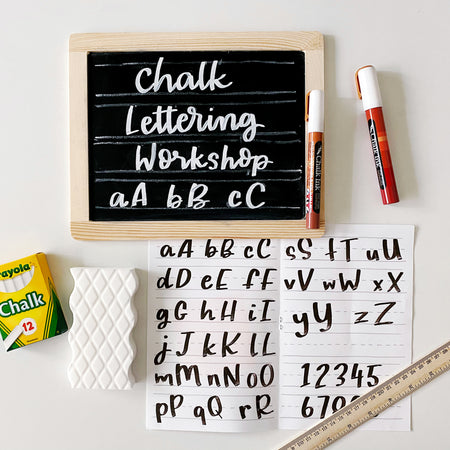 Chalk
Lettering
Workshop
aA bB cC
Chalk Ink
Chalk Ink
Crayola
Chalk
12
aA bB cC
dD eE fF
gG hH iI
jJ kK lL
mM nN oO
pP qQ rR
sS tT uU
vV wW xX
yY zZ
12345